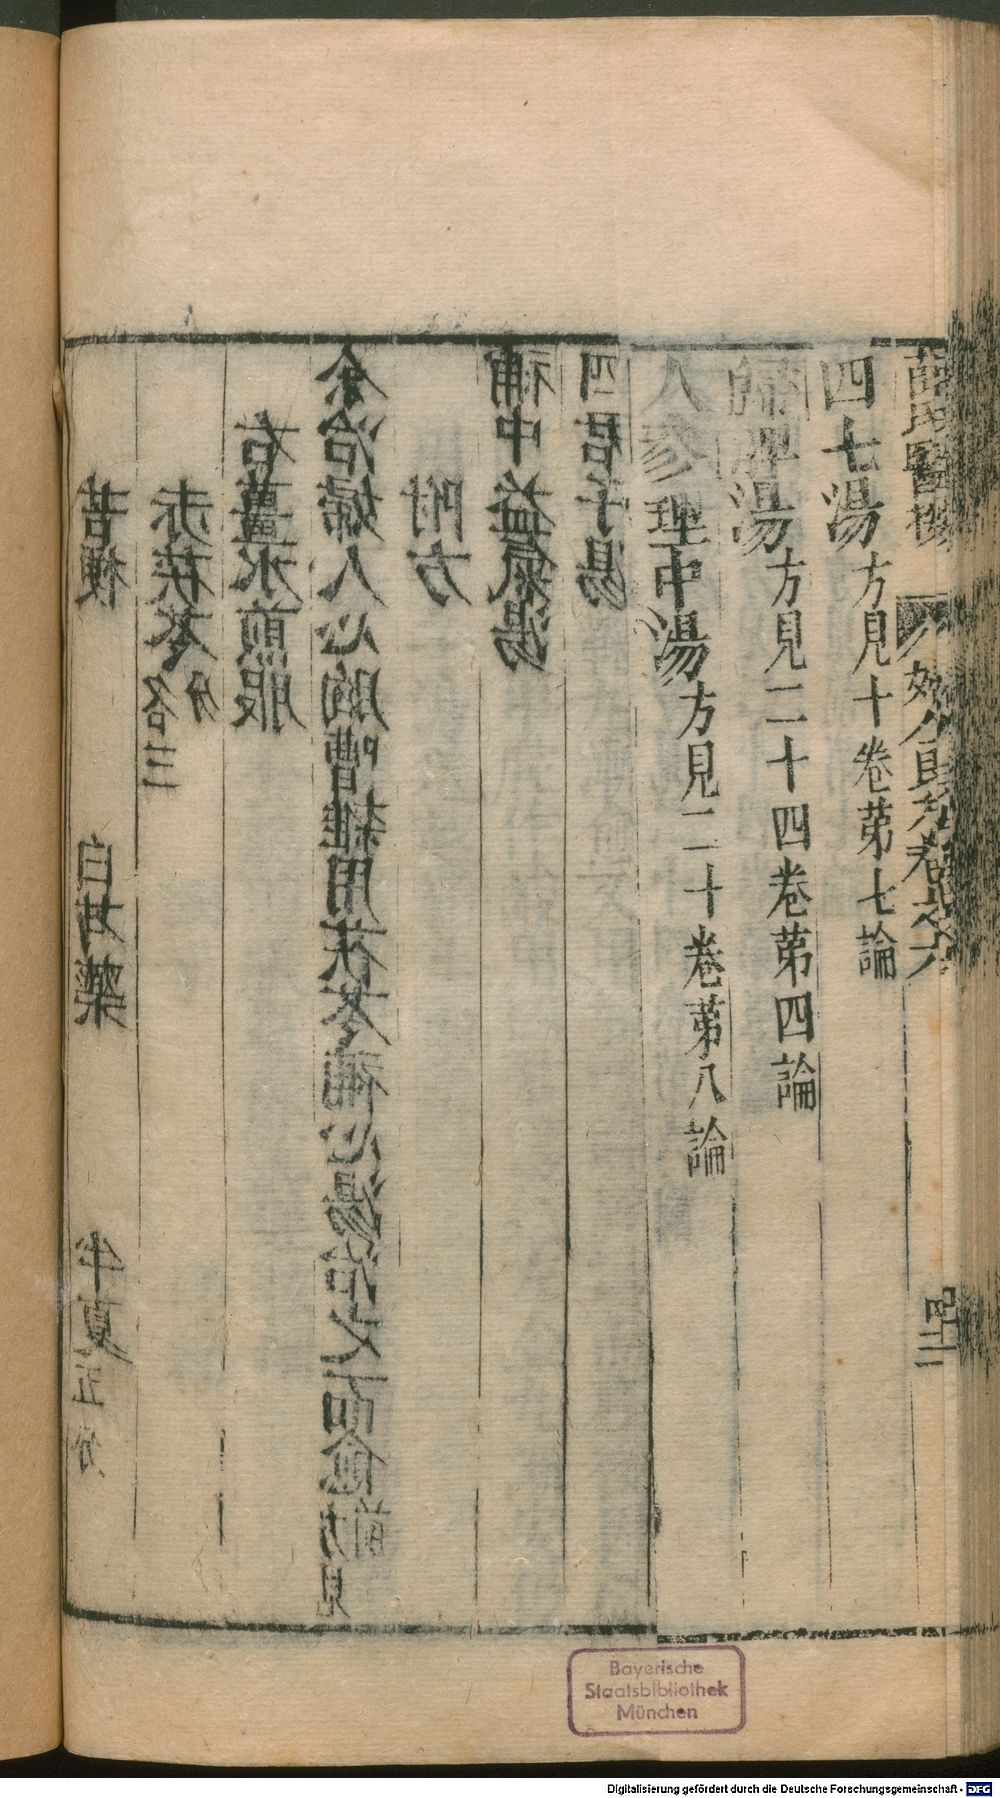 薛氏醫按 婦人良方卷之六 四二
四七湯方見十卷第七論
歸脾湯方見二十四卷第四論
人參理中湯方見二十卷第八論
四君子湯
補中益氣湯
附方
余治婦人心胸嘈雜用茯苓補心湯治之而愈方見前
右薑水煎服
赤茯苓各三分
苦梗 白芍藥 半夏五分
Bayerische
Staatsbibliothek
München
Digitalisierung gefördert durch die Deutsche Forschungsgemeinschaft - DFG